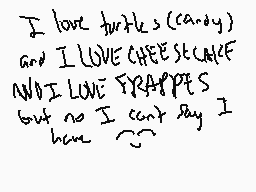 I love turtles (candy)
and I LOVE CHEESECAKE
AND I LOVE FRAPPES
but no I can't say I
have